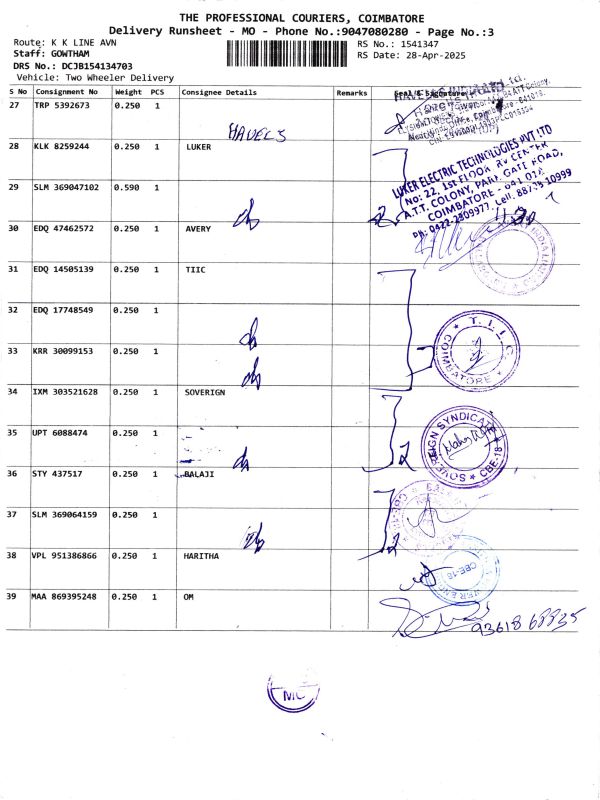 THE PROFESSIONAL COURIERS, COIMBATORE
Delivery Runsheet - MO - Phone No.:9047080280 - Page No.:3
Route: K K LINE AVN
RS No.: 1541347
Staff: GOWTHAM
RS Date: 28-Apr-2025
DRS No.: DCJB154134703
Vehicle: Two Wheeler Delivery
S No Consignment No Weight PCS Consignee Details Remarks Seal & Signature
27 TRP 5392673 0.250 1
HAVELS
28 KLK 8259244 0.250 1 LUKER
LUKER ELECTRIC TECHNOLOGIES PVT LTD
No: 22, 1st FLOOR, RV CENTER
A.T.T. COLONY, PARK GATE ROAD,
COIMBATORE - 641 018
29 SLM 369047102 0.590 1
2
30 EDQ 47462572 0.250 1 AVERY
31 EDQ 14505139 0.250 1 TIIC
32 EDQ 17748549 0.250 1
T. I. I. C
COIMBATORE
33 KRR 30099153 0.250 1
34 IXM 303521628 0.250 1 SOVERIGN
SOVEREIGN SYNDICATE
CBE-18
35 UPT 6088474 0.250 1
2
36 STY 437517 0.250 1 BALAJI
37 SLM 369064159 0.250 1
2
38 VPL 951386866 0.250 1 HARITHA
CBE-18
39 MAA 869395248 0.250 1 OM
93618 68835
MC